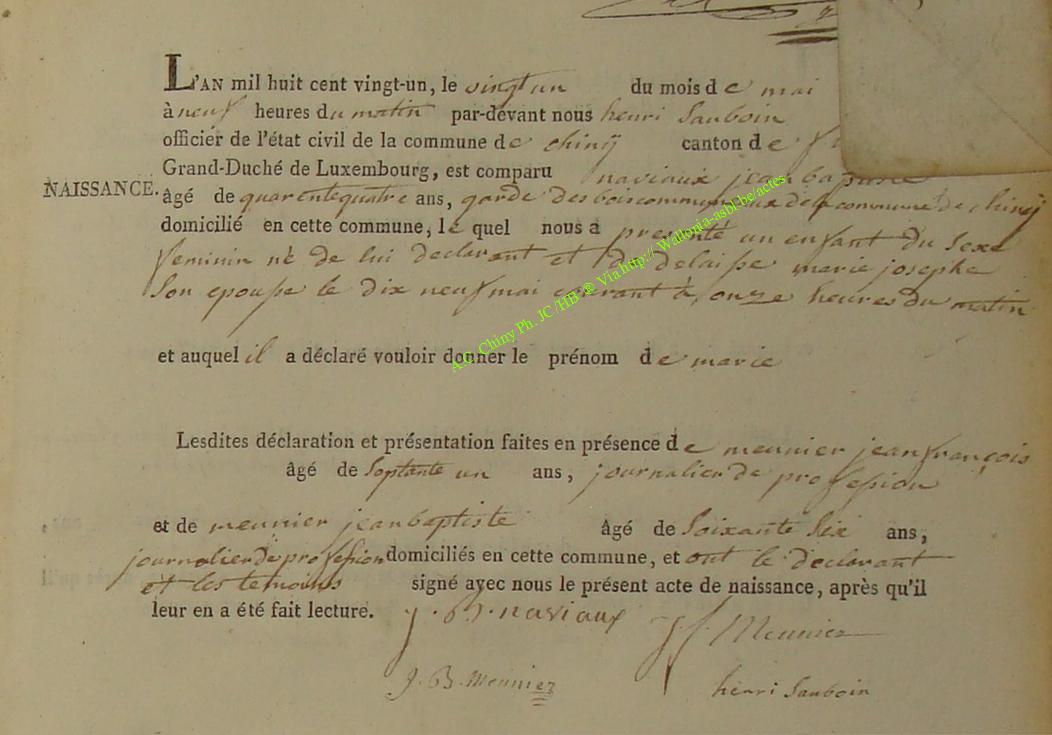 L'AN mil huit cent vingt-un, le vingt un du mois de mai
à neuf heures du matin par-devant nous henri Sauboin
officier de l'état civil de la commune de chinÿ canton de
Grand-Duché de Luxembourg, est comparu naviaux jean baptiste
NAISSANCE.
âgé de quarentequatre ans, garde des bois communaux de la commune de chinÿ
domicilié en cette commune, le quel nous a presenté un enfant du Sexe
feminin né de lui declarant et de delaisse marie josephe
Son epouse le dix neuf mai courant à onze heures du matin
et auquel il a déclaré vouloir donner le prénom de marie
Lesdites déclaration et présentation faites en présence de meunier jean françois
âgé de Soptante un ans, journalier de profession
et de meunier jean baptiste âgé de Soixante Six ans,
journalier de profession domiciliés en cette commune, et ont le declarant
et les temoins signé avec nous le présent acte de naissance, après qu'il
leur en a été fait lecture. J. B. naviaux J f Meunier
J. B. Meunier henri Sauboin
A.C. Chiny Ph. JC/HB ® Via http://Wallonia-asbl-be/actes